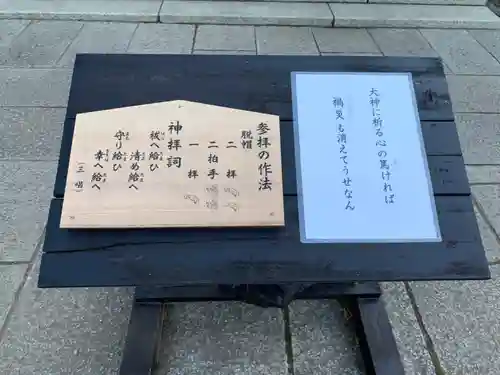 大神に祈る心の篤ければ
禍災も消えてうせなん
参拝の作法
脱帽
二拝
二拍手
一拝
神拝詞
祓へ給ひ
清め給へ
守り給ひ
幸へ給へ
(三唱)